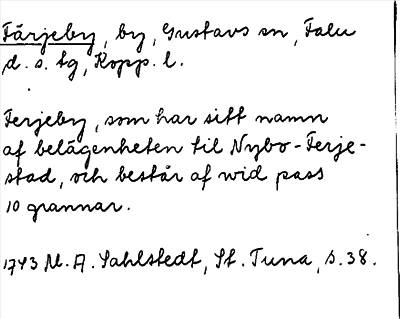 Färjeby, by, Gustavs sn, Falu
d. s. tg, Kopp. l.
Ferjeby, som har sitt namn
af belägenheten til Nybo-Ferje-
stad, och består af wid pass
10 grannar.
1743 M. A. Sahlstedt, St. Tuna, s. 38.